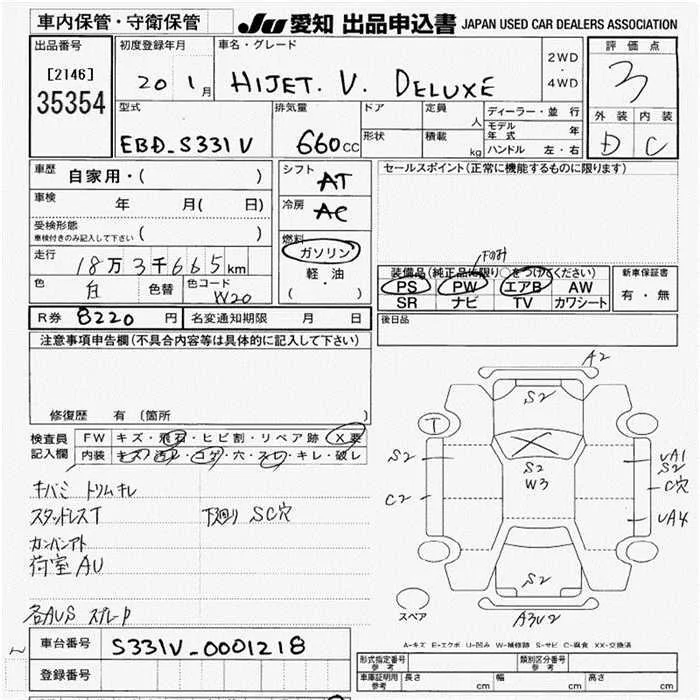 車内保管・守衛保管
JU 愛知 出品申込書 JAPAN USED CAR DEALERS ASSOCIATION
出品番号
[2146]
35354
初度登録年月
20 1月
車名・グレード
HIJET. V. DELUXE
2WD
・
4WD
評価点
3
外装 内装
D C
型式
EBD_S331V
排気量
660cc
ドア
形状
定員
人
積載
kg
ディーラー・並行
モデル
年式 年
ハンドル 左・右
車歴
自家用・( )
車検
年 月( 日)
受検形態
車検付きのみ記入して下さい ( )
走行
18万3千665km
色
白
色替
色コード
W20
シフト
AT
冷房
AC
燃料
ガソリン
軽・油
( ・ )
セールスポイント(正常に機能するものに限ります)
Fのみ
装備品(純正品に限り○をつけてください)
PS PW エアB AW
SR ナビ TV カワシート
新車保証書
有・無
R券 8220 円
名変通知期限 月 日
後日品
注意事項申告欄(不具合内容等は具体的に記入して下さい)
修復歴 有(箇所
検査員
記入欄
FW キズ・飛石・ヒビ割・リペア跡 X要
内装 キズ・汚レ・コゲ・穴・スレ・キレ・破レ
キバミ トリムキレ
スタッドレスT 下廻り SC穴
カンバンアト
荷室AU
各AUS スプレーP
A2
S2
T
S2
S2
W3
C2
UA1
S2
C穴
UA4
S2
A3U2
スペア
A-キズ E-エクボ U-凹み W-補修跡 S-サビ C-腐食 XX-交換済
車台番号 S331V_0001218
登録番号
形式指定番号
参考
類別区分番号
参考
車庫証明用
参考
長さ cm 幅 cm 高さ cm